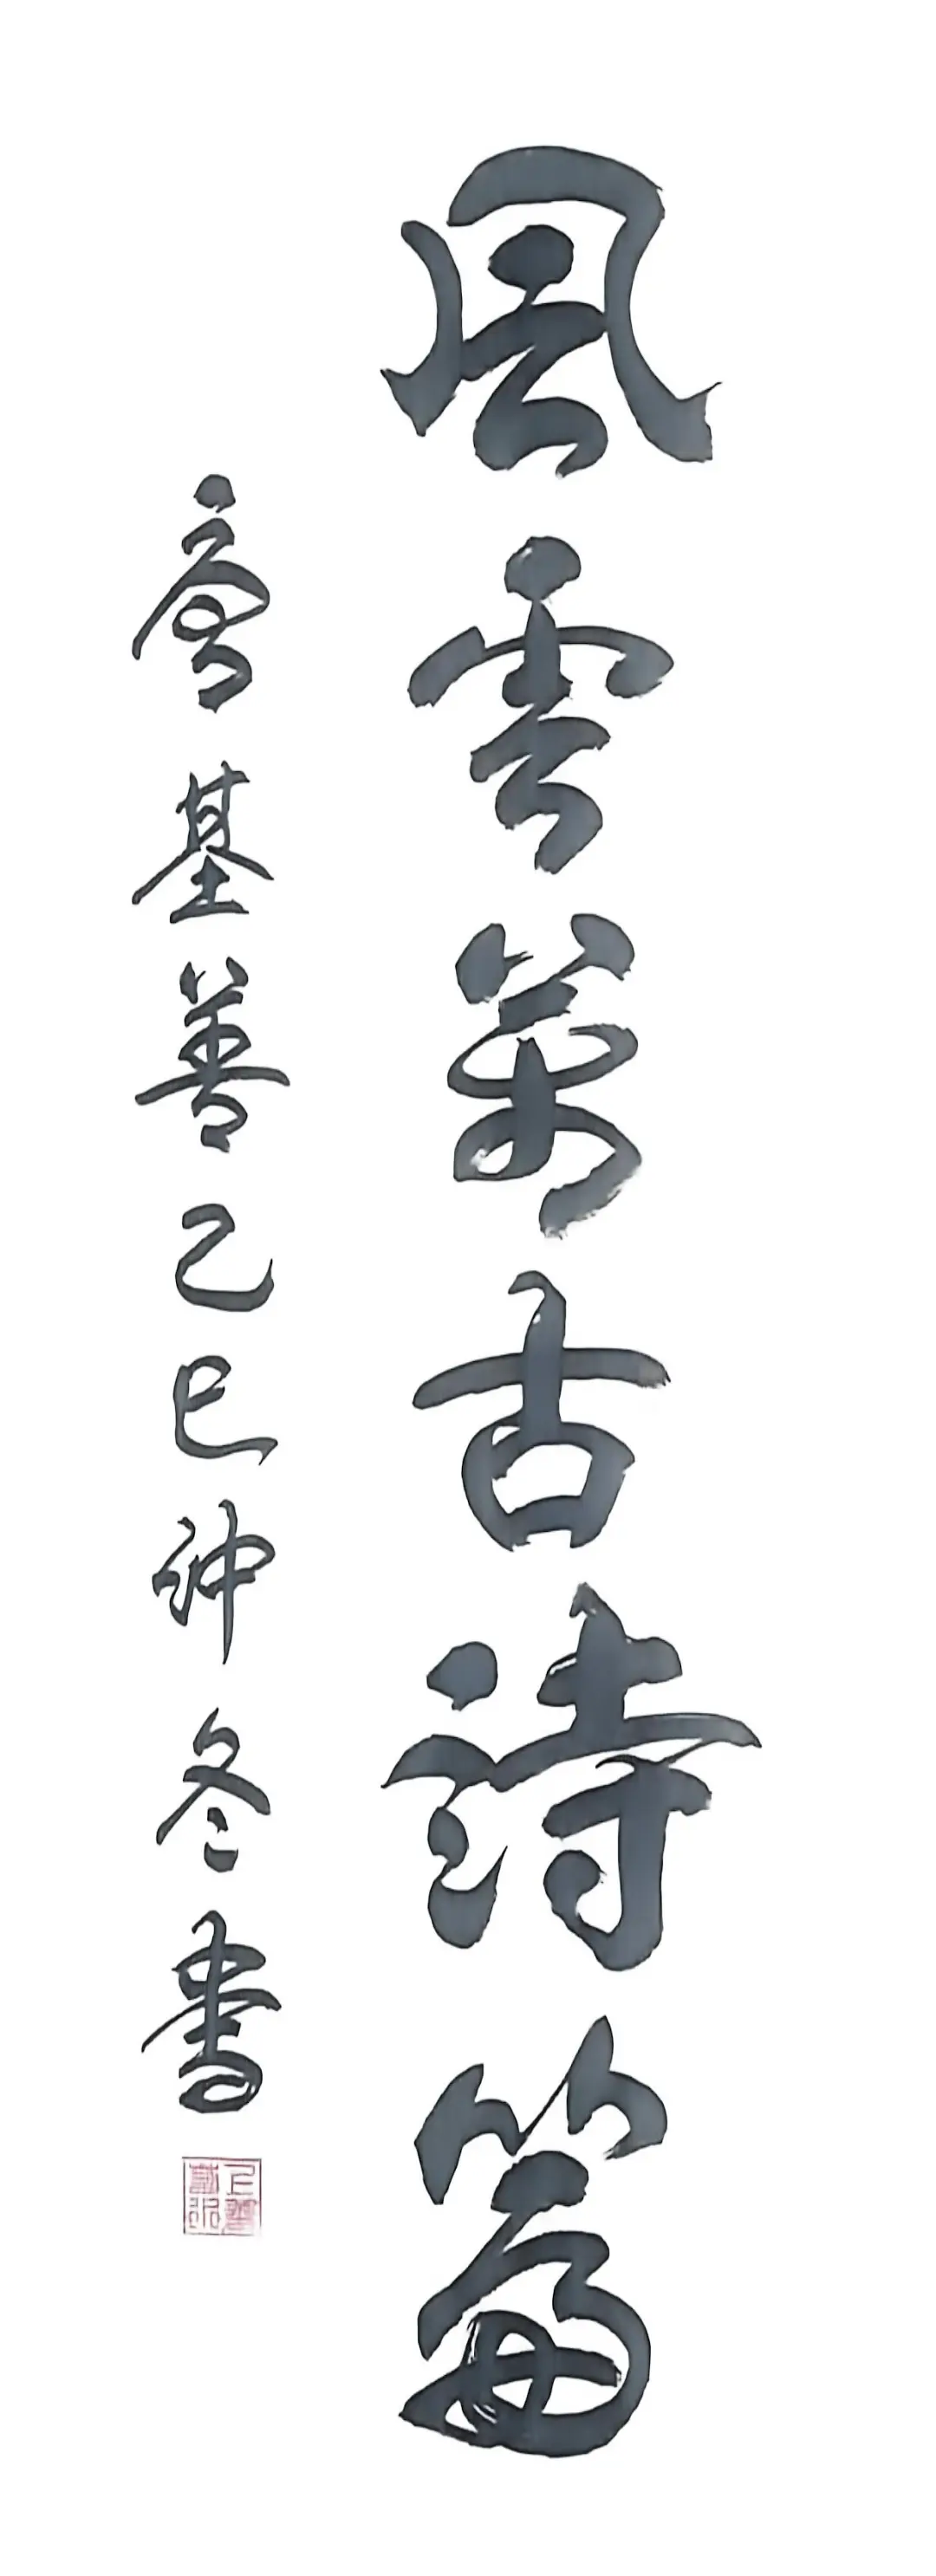 風雲萬古詩篇
基善乙巳仲冬書